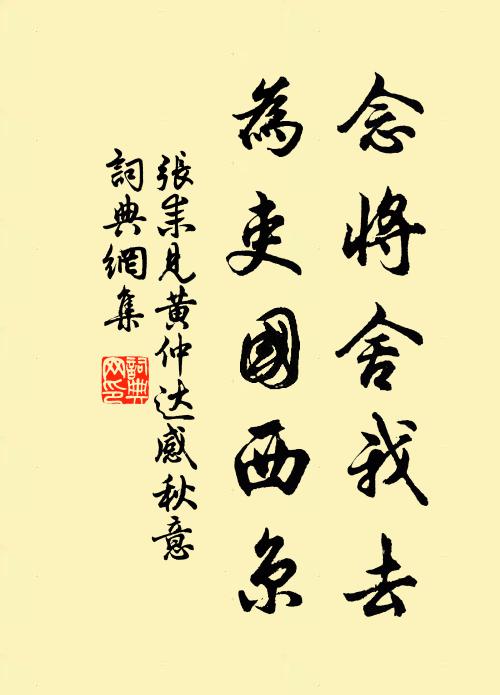 念將舍我去
為吏國西京
張耒見黃仲达感秋意
詞典網集
詞典网印